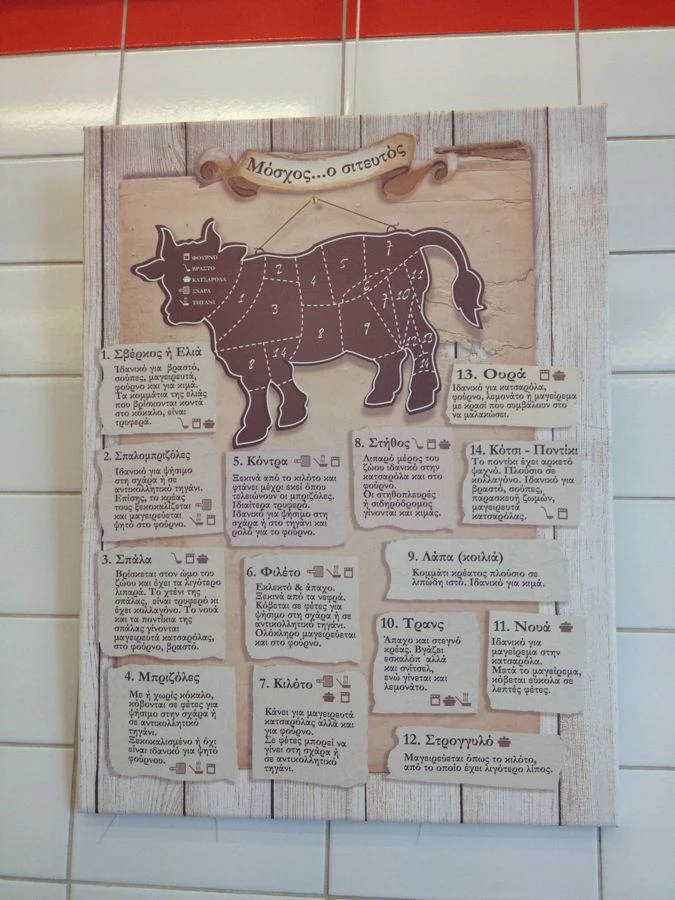 Μόσχος...ο σιτευτός
ΦΟΥΡΝΟ
ΒΡΑΣΤΟ
ΚΑΤΣΑΡΟΛΑ
ΣΧΑΡΑ
ΤΗΓΑΝΙ
1
2
3
4
5
6
7
7
7
8
8
9
10
11
12
13
14
14
1. Σβέρκος ή Ελιά
Ιδανικό για βραστό,
σούπες, μαγειρευτά,
φούρνο και για κιμά.
Τα κομμάτια της ελιάς
που βρίσκονται κοντά
στο κόκαλο, είναι
τρυφερά.
2. Σπαλομπριζόλες
Ιδανικό για ψήσιμο
στη σχάρα ή σε
αντικολλητικό τηγάνι.
Επίσης, το κρέας
τους ξεκοκαλίζεται
και μαγειρεύεται
ψητό στο φούρνο.
3. Σπάλα
Βρίσκεται στον ώμο του
ζώου και έχει τα λιγότερο
λιπαρά. Το χτένι της
σπάλας, είναι τρυφερό κι
έχει κολλαγόνο. Το νουά
και τα ποντίκια της
σπάλας γίνονται
μαγειρευτά κατσαρόλας,
στο φούρνο, βραστό.
4. Μπριζόλες
Με ή χωρίς κόκαλο,
κόβονται σε φέτες για
ψήσιμο στην σχάρα ή
σε αντικολλητικό
τηγάνι.
Ξεκοκαλισμένο ή όχι
είναι ιδανικό για ψητό
φούρνου.
5. Κόντρα
Ξεκινά από το κιλότο και
φτάνει μέχρι εκεί όπου
τελειώνουν οι μπριζόλες.
Ιδιαίτερα τρυφερό.
Ιδανικό για ψήσιμο στη
σχάρα ή στο τηγάνι και
ρολό για το φούρνο.
6. Φιλέτο
Εκλεκτό & άπαχο.
Ξεκινά από τα νεφρά.
Κόβεται σε φέτες για
ψήσιμο στη σχάρα ή σε
αντικολλητικό τηγάνι.
Ολόκληρο μαγειρεύεται
και στο φούρνο.
7. Κιλότο
Κάνει για μαγειρευτά
κατσαρόλας αλλά και
για φούρνο.
Σε φέτες μπορεί να
γίνει στη σχάρα ή
σε αντικολλητικό
τηγάνι.
8. Στήθος
Λιπαρό μέρος του
ζώου ιδανικό στην
κατσαρόλα και στο
φούρνο.
Οι στηθοπλευρές
ή σιδηρόδρομος
γίνονται και κιμάς.
9. Λάπα (κοιλιά)
Κομμάτι κρέατος πλούσιο σε
λιπώδη ιστό. Ιδανικό για κιμά.
10. Τρανς
Άπαχο και στεγνό
κρέας. Βγάζει
εσκαλόπ αλλά
και σνίτσελ,
ενώ γίνεται και
λεμονάτο.
11. Νουά
Ιδανικό για
μαγείρεμα στην
κατσαρόλα.
Μετά το μαγείρεμα,
κόβεται εύκολα σε
λεπτές φέτες.
12. Στρογγυλό
Μαγειρεύεται όπως το κιλότο,
από το οποίο έχει λιγότερο λίπος.
13. Ουρά
Ιδανικό για κατσαρόλα,
φούρνο, λεμονάτο ή μαγείρεμα
με κρασί που συμβάλουν στο
να μαλακώσει.
14. Κότσι - Ποντίκι
Το ποντίκι έχει αρκετό
ψαχνό. Πλούσιο σε
κολλαγόνο. Ιδανικό για
βραστό, σούπες,
παρασκευή ζωμών,
μαγειρευτά
κατσαρόλας.